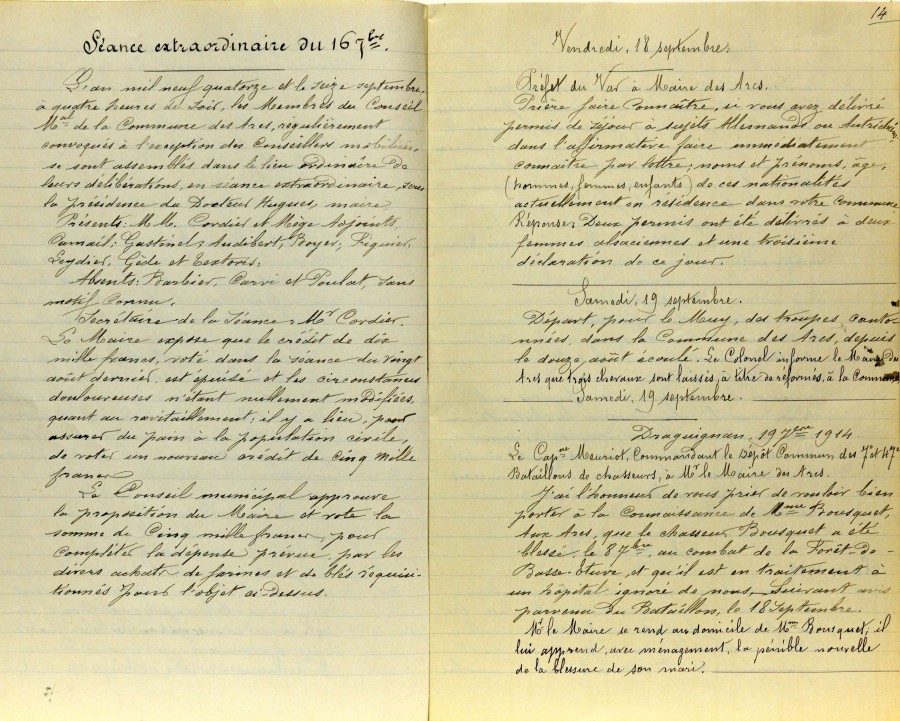 Séance extraordinaire du 16 7bre.
L'an mil neuf quatorze et le seize septembre,
à quatre heures du soir, les Membres du Conseil
Mal de la Commune des Arcs, régulièrement
convoqués à l'exception des Conseillers mobilisés,
se sont assemblés dans le lieu ordinaire de
leurs délibérations, en séance extraordinaire, sous
la présidence du Docteur Hugues, maire
Présents: M.M. Cordier et Mège Adjoints
Camail; Gastinel; Audibert; Boyer; Figuier,
Leydier, Gède et Testoris;
Absents: Barbier, Carvi et Poulat, sans
motif connu.
Secrétaire de la Séance: Mr Cordier.
Le Maire expose que le crédit de dix
mille francs, voté dans la séance du vingt
août dernier, est épuisé et les circonstances
douloureuses n'étant nullement modifiées,
quant au ravitaillement; il y a lieu, pour
assurer du pain à la population civile,
de voter un nouveau crédit de cinq mille
francs
Le Conseil municipal approuve
la proposition du Maire et vote la
somme de Cinq mille francs, pour
compléter la dépense prévue, par les
divers achats de farines et de blés réquisi-
tionnés pour l'objet ci-dessus.
14
Vendredi, 18 septembre.
Préfet du Var à Maire des Arcs.
Prière faire connaître, si vous avez délivré
permis de séjour à sujets Allemands ou Autrichiens,
dans l'affirmative faire immédiatement
connaître par lettre; noms et prénoms, âge,
(hommes, femmes, enfants) de ces nationalités
actuellement en résidence dans votre Commune
Réponse: Deux permis ont été délivrés à deux
femmes alsaciennes et une troisième
déclaration de ce jour.
Samedi, 19 septembre.
Départ, pour le Muy, des troupes, canton-
nées, dans la Commune des Arcs, depuis
le douze août écoulé. Le Colonel informe le Maire des
Arcs que trois chevaux sont laissés, à titre de réformés, à la Commune
Samedi, 19 septembre.
Draguignan, 19 7bre 1914
Le Capne Meuriot, Commandant le Dépôt Commun des 7e et 47e
Bataillons de chasseurs, à Mr le Maire des Arcs.
J'ai l'honneur de vous prier de vouloir bien
porter à la Connaissance de Mme Bousquet,
aux Arcs, que le chasseur Bousquet a été
blessé, le 8 7bre, au combat de la Forêt-de-
Basse-Eture, et qu'il est en traitement à
un hôpital ignoré de nous, Suivant avis
parvenu du Bataillon, le 18 Septembre.
Mr le Maire se rend au domicile de Mme Bousquet; il
lui apprend, avec ménagement, la pénible nouvelle
de la blessure de son mari.